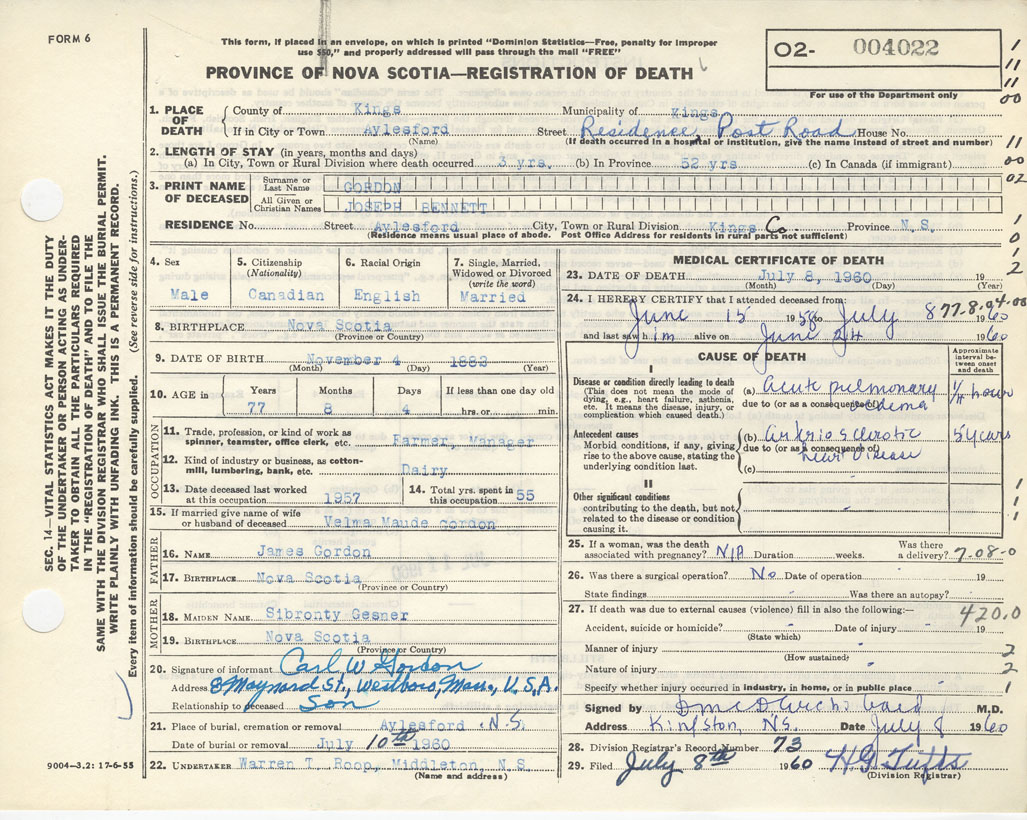 FORM 6
This form, if placed in an envelope, on which is printed "Dominion Statistics—Free, penalty for improper
use $50," and properly addressed will pass through the mail "FREE"
PROVINCE OF NOVA SCOTIA—REGISTRATION OF DEATH
O2- 004022
For use of the Department only
1. PLACE OF DEATH
County of Kings Municipality of Kings
If in City or Town Aylesford Street Residence, Post Road House No.
(Name) (If death occurred in a hospital or institution, give the name instead of street and number)
2. LENGTH OF STAY (in years, months and days)
(a) In City, Town or Rural Division where death occurred 3 yrs. (b) In Province 52 yrs (c) In Canada (if immigrant)
3. PRINT NAME OF DECEASED
Surname or Last Name GORDON
All Given or Christian Names JOSEPH BENNETT
RESIDENCE No. Street Aylesford City, Town or Rural Division Kings Co Province N.S.
(Residence means usual place of abode. Post Office Address for residents in rural parts not sufficient)
4. Sex
Male
5. Citizenship
(Nationality)
Canadian
6. Racial Origin
English
7. Single, Married,
Widowed or Divorced
(write the word)
Married
8. BIRTHPLACE Nova Scotia
(Province or Country)
9. DATE OF BIRTH November 4 1882
(Month) (Day) (Year)
10. AGE in Years Months Days If less than one day old
77 8 4 hrs. or min.
OCCUPATION
11. Trade, profession, or kind of work as
spinner, teamster, office clerk, etc. Farmer, Manager
12. Kind of industry or business, as cotton-
mill, lumbering, bank, etc. Dairy
13. Date deceased last worked
at this occupation 1957
14. Total yrs. spent in
this occupation 55
15. If married give name of wife
or husband of deceased Velma Maude gordon
FATHER
16. NAME James Gordon
17. BIRTHPLACE Nova Scotia
(Province or Country)
MOTHER
18. MAIDEN NAME Sibronty Gesner
19. BIRTHPLACE Nova Scotia
(Province or Country)
20. Signature of informant Carl W Gordon
Address 8 Maynard St., Westboro, Mass, U.S.A.
Relationship to deceased Son
21. Place of burial, cremation or removal Aylesford N.S.
Date of burial or removal July 10th 1960
22. UNDERTAKER Warren T. Roop, Middleton, N.S.
(Name and address)
MEDICAL CERTIFICATE OF DEATH
23. DATE OF DEATH July 8, 1960 19
(Month) (Day) (Year)
24. I HEREBY CERTIFY that I attended deceased from:
June 15 1958 to July 8 1960
and last saw him alive on June 24 1960
CAUSE OF DEATH
Approximate interval between onset and death
I
Disease or condition directly leading to death
(This does not mean the mode of
dying, e.g., heart failure, asthenia,
etc. It means the disease, injury, or
complication which caused death.)
(a) Acute pulmonary 1/4 hour
due to (or as a consequence of) oedema
Antecedent causes
Morbid conditions, if any, giving
rise to the above cause, stating the
underlying condition last.
(b) arteriosclerotic 5 years
due to (or as a consequence of) heart disease
(c)
II
Other significant conditions
contributing to the death, but not
related to the disease or condition
causing it.
25. If a woman, was the death
associated with pregnancy? N/A Duration weeks. Was there a delivery? 7-08-0
26. Was there a surgical operation? No Date of operation 19
State findings Was there an autopsy?
27. If death was due to external causes (violence) fill in also the following:— 420.0
Accident, suicide or homicide? - Date of injury 19
(State which)
Manner of injury - 2
(How sustained)
Nature of injury - 2
Specify whether injury occurred in industry, in home, or in public place - 1
Signed by M.D.
Address Kingston, N.S. Date July 8 1960
28. Division Registrar's Record Number 73
29. Filed July 8th 1960 H G Tufts
(Division Registrar)
SEC. 14—VITAL STATISTICS ACT MAKES IT THE DUTY
OF THE UNDERTAKER OR PERSON ACTING AS UNDER-
TAKER TO OBTAIN ALL THE PARTICULARS REQUIRED
IN THE "REGISTRATION OF DEATH" AND TO FILE THE
SAME WITH THE DIVISION REGISTRAR WHO SHALL ISSUE THE BURIAL PERMIT.
WRITE PLAINLY WITH UNFADING INK. THIS IS A PERMANENT RECORD.
Every item of information should be carefully supplied. (See reverse side for instructions.)
9004—3.2: 17-6-55
1
11
11
00
11
00
02
1
0
1
2
1
1
1